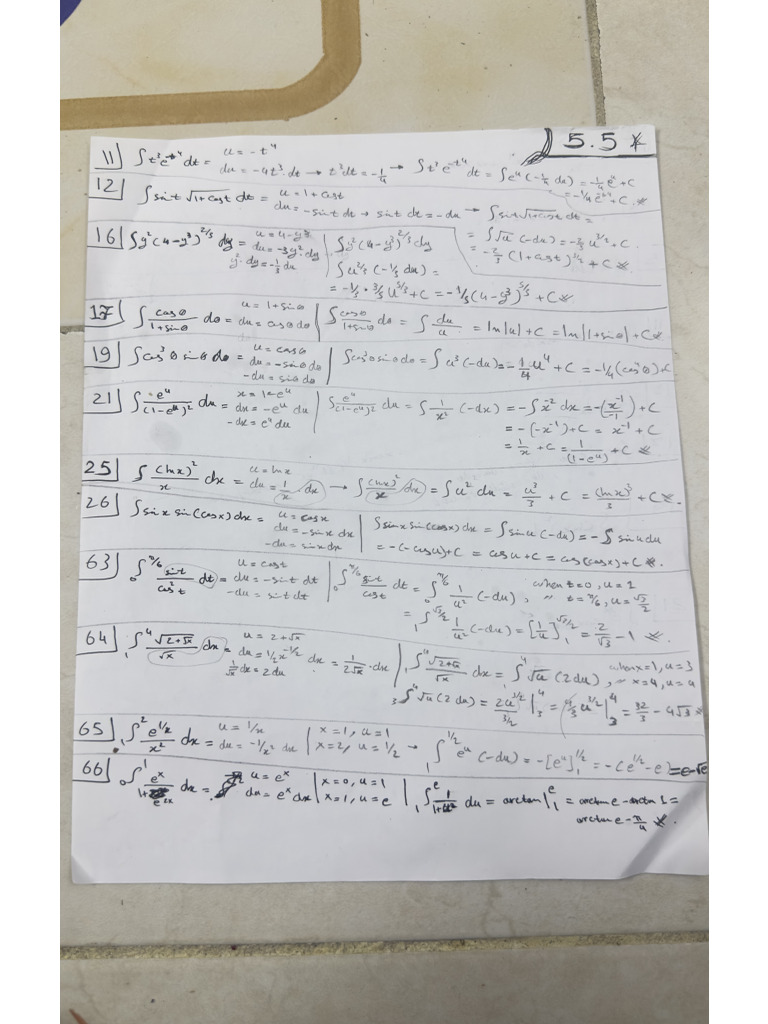 5.5 *
11) ∫t³e^-t⁴ dt = u = -t⁴
du = -4t³ dt → t³dt = -1/4 → ∫t³e^-t⁴ dt = ∫e^u (-1/4 du) = -1/4 e^u + C
= -1/4 e^-t⁴ + C *
12) ∫sint √1+cost dt = u = 1+cost
du = -sint dt → sint dt = -du → ∫sint √1+cost dt =
= ∫√u (-du) = -2/3 u^3/2 + C
= -2/3 (1+cost)^3/2 + C *
16) ∫y²(4-y³)^2/3 dy = u = 4-y³
du = -3y² dy
y² dy = -1/3 du
∫y²(4-y³)^2/3 dy
∫u^2/3 (-1/3 du) =
= -1/3 · 3/5 u^5/3 + C = -1/5 (4-y³)^5/3 + C *
17) ∫ cosθ/1+sinθ dθ = u = 1+sinθ
du = cosθ dθ | ∫ cosθ/1+sinθ dθ = ∫ du/u = ln|u| + C = ln|1+sinθ| + C *
19) ∫cos³θ sinθ dθ = u = cosθ
du = -sinθ dθ
-du = sinθ dθ | ∫cos³θ sinθ dθ = ∫u³(-du) = -1/4 u⁴ + C = -1/4 (cos⁴θ) + C
21) ∫ e^u/(1-e^u)² du = x = 1-e^u
dx = -e^u du
-dx = e^u du | ∫ e^u/(1-e^u)² du = ∫ 1/x² (-dx) = -∫x^-2 dx = -(x^-1/-1) + C
= -(-x^-1) + C = x^-1 + C
= 1/x + C = 1/(1-e^u) + C *
25) ∫ (lnx)²/x dx = u = lnx
du = 1/x dx → ∫ (lnx)²/x dx = ∫u² du = u³/3 + C = (lnx)³/3 + C *.
26) ∫sinx sin(cosx) dx = u = cosx
du = -sinx dx
-du = sinx dx | ∫sinx sin(cosx) dx = ∫sinu (-du) = -∫sinu du
= -(-cosu) + C = cosu + C = cos(cosx) + C *.
63) 0∫^π/6 sint/cos²t dt = u = cost
du = -sint dt
-du = sint dt | 0∫^π/6 sint/cost dt = 0∫^π/6 1/u² (-du), when t=0, u=1
" t=π/6, u=√3/2
= 1∫^√3/2 1/u² (-du) = [1/u]1^√3/2 = 2/√3 - 1 *.
64) 1∫^4 √2+√x/√x dx = u = 2+√x
du = 1/2 x^-1/2 dx = 1/2√x · dx
1/√x dx = 2 du | 1∫^4 √2+√x/√x dx = 1∫^4 √u (2 du), when x=1, u=3
" x=4, u=4
3∫^4 √u (2 du) = 2u^3/2/3/2 |3^4 = 4/3 u^3/2 |3^4 = 32/3 - 4√3 *
65) 1∫^2 e^1/x/x² dx = u = 1/x
du = -1/x² dx | x=1, u=1
x=2, u=1/2 → 1∫^1/2 e^u (-du) = -[e^u]1^1/2 = -(e^1/2 - e) = e-√e
66) 0∫^1 e^x/1+e^2x dx = u = e^x
du = e^x dx | x=0, u=1
x=1, u=e | 1∫^e 1/1+u² du = arctan|1^e = arctan e - arctan 1 =
arctan e - π/4 *.